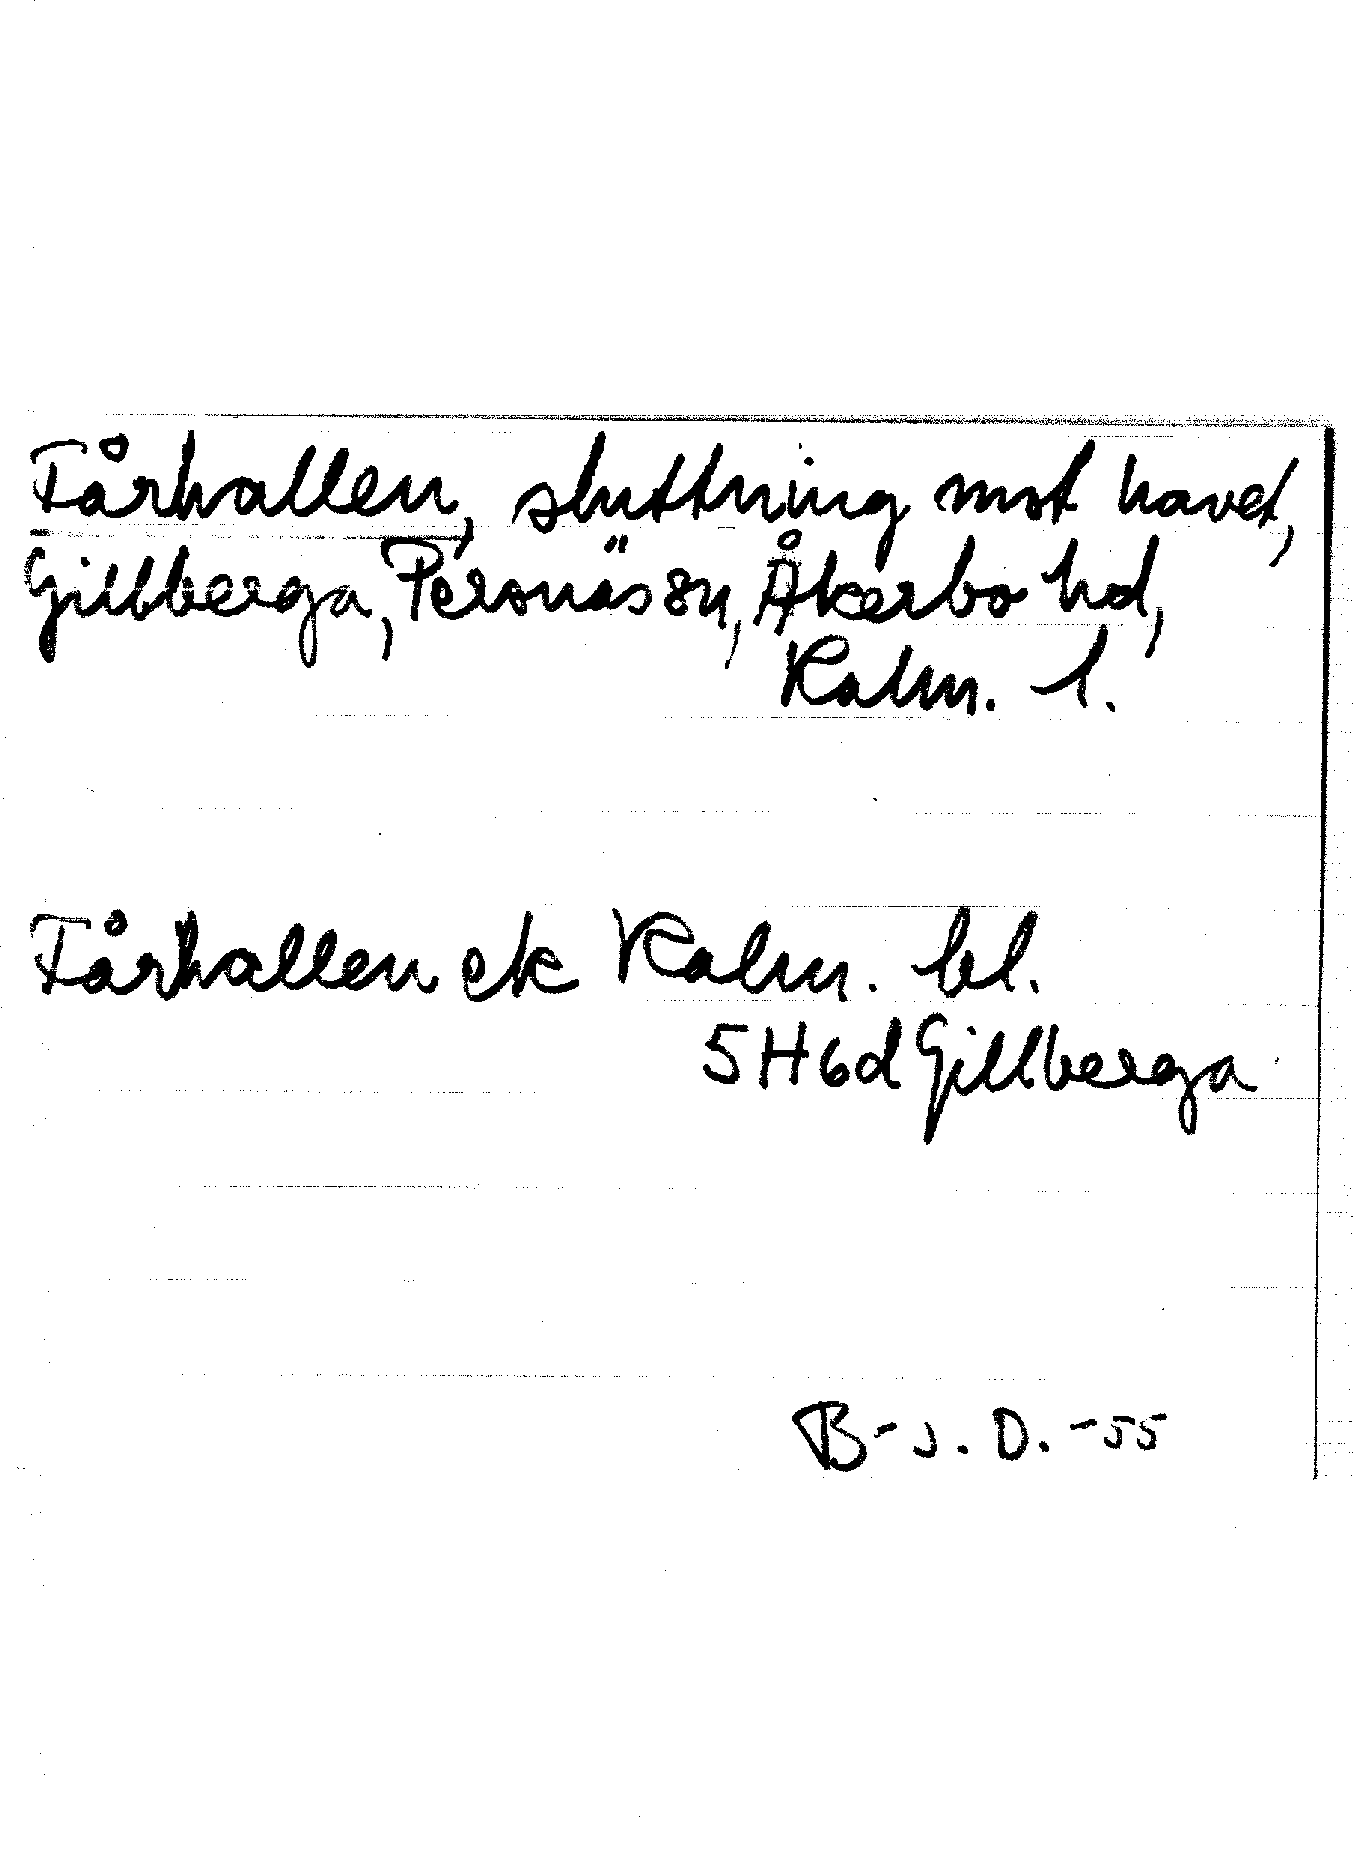 Fårhallen, sluttning mot havet,
Gillberga, Persnäs sn, Åkerbo hd,
Kalm. l.
Fårhallen ek Kalm. bl.
5H6d Gillberga
B-J.D. -55